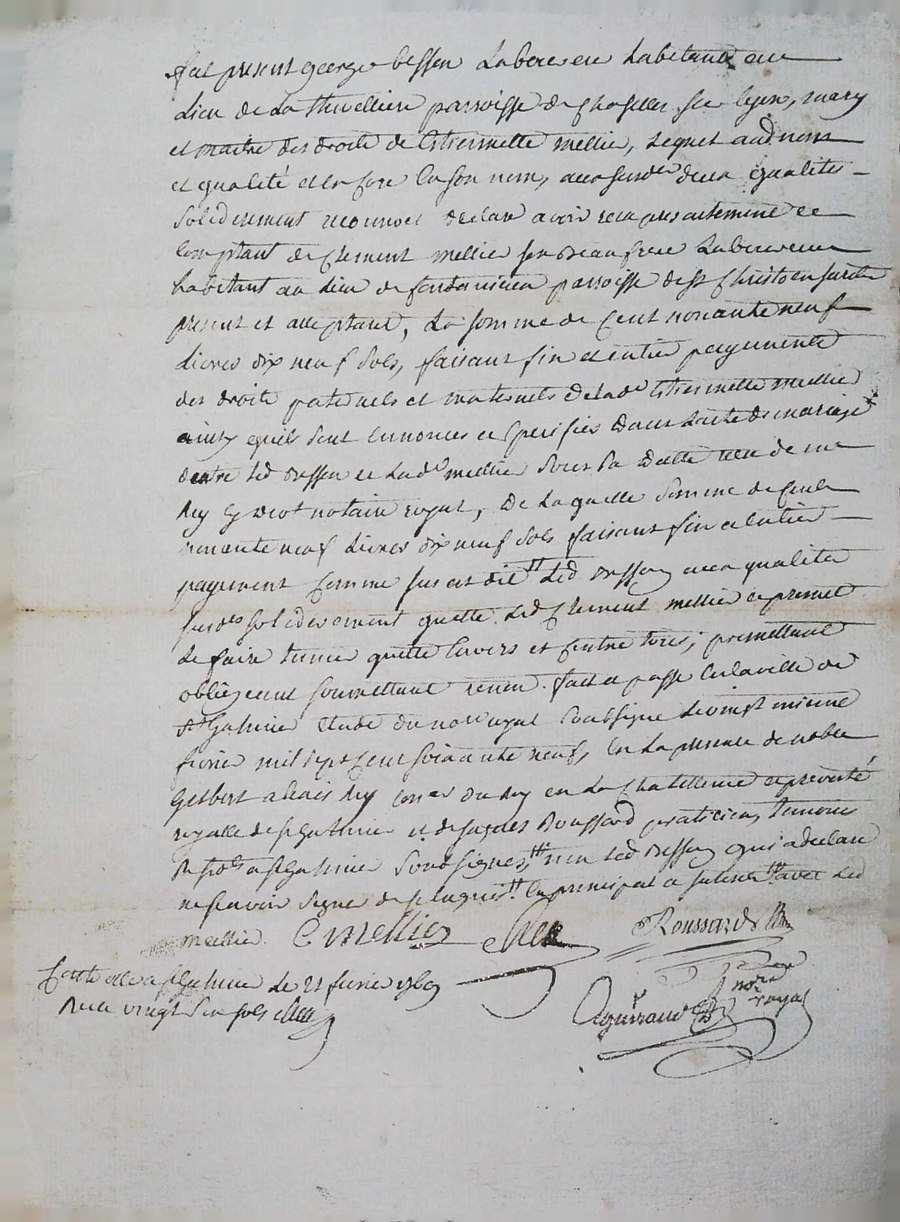 fut present george bessen Laboureur habitant au
Lieu de La thevelliere parroisse de Chaselles sur lyon, mary
et maitre des droits de Estiennette mellier, Lequel aud nom
et qualité et en core en son nom, aux susdes deux qualités
solidairement reconnoit declare avoir reçu presentement et
comptant de Clement mellier son beau frere Laboureur
habitant au Lieu de parroisse de st Christo en jarest
present et acceptant, La somme de Cent nonante neuf
Livres dix neuf sols, faisant fin et entier payement
des droits paternels et maternels de lade Estiennette mellier
ainsy quils sont Enoncés et specifies dans lacte de mariage
dentre led bessen et Lade mellier sous sa datte reçu de me
notaire royal, De Laquelle somme de Cent
nonante neuf Livres dix neuf sols faisant fin et entier
payement Comme sus est dit Led bessen aux qualités
susdes solidairement quitte Led Clement mellier et promet
de faire tenir quitte Envers et Contre tous; promettant
obligeant soumettant renon. fait et passé En la ville de
st Galmier Etude du nore royal soussigné Le vingt unieme
fevrier mil sept Cent soixante neuf, En La presence de noble
Gesbert alexis Rey coner du Roy en La Chatellenie et prevoté
royalle de st Galmier et de jaques Roussard praticien, temoins
a st Galmier soubsignes, non Led bessen qui a declaré
ne scavoir signer de ce Enquis En principal a soussigné avec Led
mellier. C mellier Rey Roussard
Controllé a st Galmier le 21 fevrier 1769
Reçu vingt six sols
nore royal